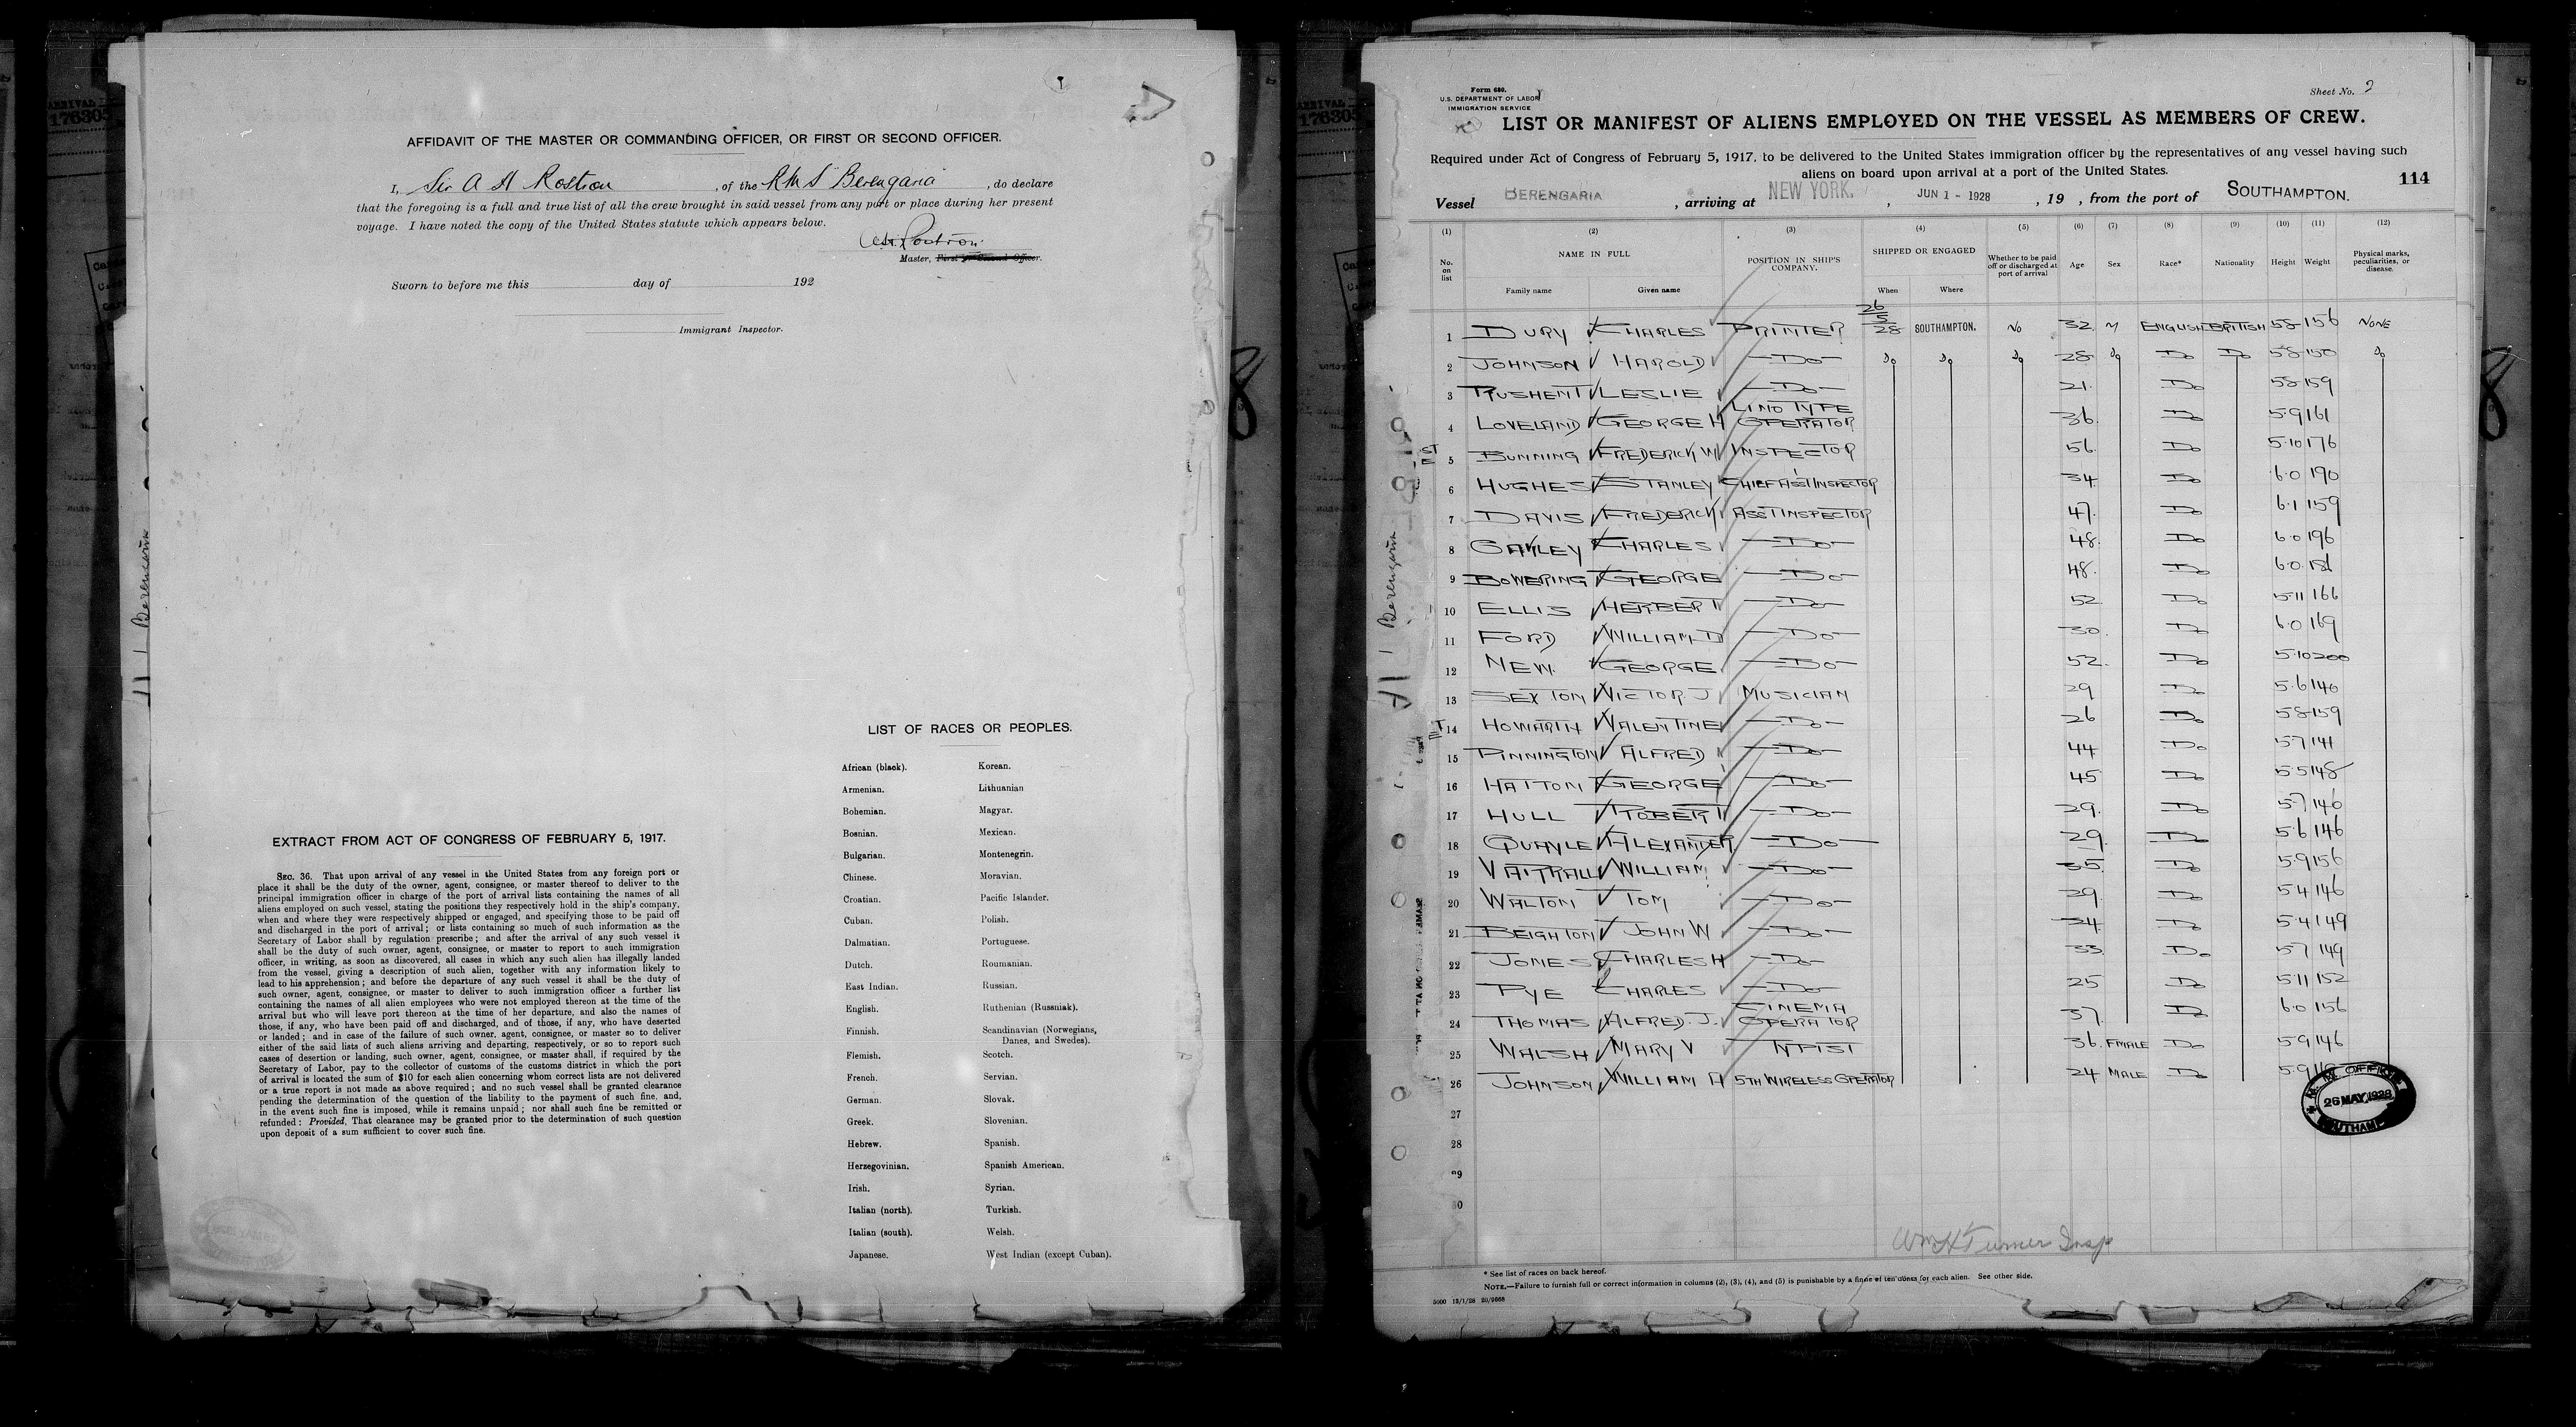 ARRIVAL
176305
1
AFFIDAVIT OF THE MASTER OR COMMANDING OFFICER, OR FIRST OR SECOND OFFICER.
I, Sir A H Rostron, of the RMS "Berengaria", do declare
that the foregoing is a full and true list of all the crew brought in said vessel from any port or place during her present
voyage. I have noted the copy of the United States statute which appears below.
A H Rostron
Master, First or Second Officer.
Sworn to before me this day of 192
Immigrant Inspector.
Berengaria
LIST OF RACES OR PEOPLES.
African (black). Korean.
Armenian. Lithuanian
Bohemian. Magyar.
Bosnian. Mexican.
Bulgarian. Montenegrin.
Chinese. Moravian.
Croatian. Pacific Islander.
Cuban. Polish.
Dalmatian. Portuguese.
Dutch. Roumanian.
East Indian. Russian.
English. Ruthenian (Russniak).
Finnish. Scandinavian (Norwegians,
Danes, and Swedes).
Flemish. Scotch.
French. Servian.
German. Slovak.
Greek. Slovenian.
Hebrew. Spanish.
Herzegovinian. Spanish American.
Irish. Syrian.
Italian (north). Turkish.
Italian (south). Welsh.
Japanese. West Indian (except Cuban).
EXTRACT FROM ACT OF CONGRESS OF FEBRUARY 5, 1917.
SEC. 36. That upon arrival of any vessel in the United States from any foreign port or
place it shall be the duty of the owner, agent, consignee, or master thereof to deliver to the
principal immigration officer in charge of the port of arrival lists containing the names of all
aliens employed on such vessel, stating the positions they respectively hold in the ship's company,
when and where they were respectively shipped or engaged, and specifying those to be paid off
and discharged in the port of arrival; or lists containing so much of such information as the
Secretary of Labor shall by regulation prescribe; and after the arrival of any such vessel it
shall be the duty of such owner, agent, consignee, or master to report to such immigration
officer, in writing, as soon as discovered, all cases in which any such alien has illegally landed
from the vessel, giving a description of such alien, together with any information likely to
lead to his apprehension; and before the departure of any such vessel it shall be the duty of
such owner, agent, consignee, or master to deliver to such immigration officer a further list
containing the names of all alien employees who were not employed thereon at the time of the
arrival but who will leave port thereon at the time of her departure, and also the names of
those, if any, who have been paid off and discharged, and of those, if any, who have deserted
or landed; and in case of the failure of such owner, agent, consignee, or master so to deliver
either of the said lists of such aliens arriving and departing, respectively, or so to report such
cases of desertion or landing, such owner, agent, consignee, or master shall, if required by the
Secretary of Labor, pay to the collector of customs of the customs district in which the port
of arrival is located the sum of $10 for each alien concerning whom correct lists are not delivered
or a true report is not made as above required; and no such vessel shall be granted clearance
pending the determination of the question of the liability to the payment of such fine, and,
in the event such fine is imposed, while it remains unpaid; nor shall such fine be remitted or
refunded: Provided, That clearance may be granted prior to the determination of such question
upon deposit of a sum sufficient to cover such fine.
8
ARRIVAL
176305
Form 680.
U.S. DEPARTMENT OF LABOR
IMMIGRATION SERVICE
Sheet No. 2
LIST OR MANIFEST OF ALIENS EMPLOYED ON THE VESSEL AS MEMBERS OF CREW.
Required under Act of Congress of February 5, 1917, to be delivered to the United States immigration officer by the representatives of any vessel having such
aliens on board upon arrival at a port of the United States.
114
Vessel BERENGARIA, arriving at NEW YORK., JUN 1 - 1928, 19 , from the port of SOUTHAMPTON.
(1) (2) (3) (4) (5) (6) (7) (8) (9) (10) (11) (12)
No. on list NAME IN FULL Family name Given name POSITION IN SHIP'S COMPANY. SHIPPED OR ENGAGED When Where Whether to be paid off or discharged at port of arrival Age Sex Race* Nationality Height Weight Physical marks, peculiarities, or disease.
1 DURY CHARLES PRINTER 26/5/28 SOUTHAMPTON. NO 32 M ENGLISH BRITISH 5-8 156 NONE
2 JOHNSON HAROLD DO do do do 28 do DO DO 5-8 150 do
3 RUSHENT LESLIE DO 21 DO 5-8 159
4 LOVELAND GEORGE H LINO TYPE OPERATOR 36 DO 5-9 161
5 BUNNING FREDERICK W INSPECTOR 56 DO 5-10 176
6 HUGHES STANLEY CHIEF ASST INSPECTOR 34 DO 6-0 190
7 DAVIS FREDERICK ASST INSPECTOR 47 DO 6-1 159
8 OAKLEY CHARLES DO 48 DO 6-0 196
9 BOWERING GEORGE DO 48 DO 6-0
10 ELLIS HERBERT DO 52 DO 5-11 166
11 FORD WILLIAM D DO 30 DO 6-0 169
12 NEW. GEORGE DO 52 DO 5-10 200
13 SEXTON VICTOR. J MUSICIAN 29 DO 5-6 140
14 HOWARTH VALENTINE DO 26 DO 5-8 159
15 PINNINGTON ALFRED DO 44 DO 5-7 141
16 HATTON GEORGE DO 45 DO 5-5 148
17 HULL ROBERT DO 29 DO 5-7 146
18 QUAYLE ALEXANDER DO 29 DO 5-6 146
19 WILLIAM DO 35 DO 5-9 156
20 WALTON TOM DO 29 DO 5-4 146
21 BEIGHTON JOHN W DO 34 DO 5-4 149
22 JONES CHARLES H DO 33 DO 5-7 149
23 PYE CHARLES DO 25 DO 5-11 152
24 THOMAS ALFRED. J. CINEMA OPERATOR 37 DO 6-0 156
25 WALSH MARY V TYPIST 36 FMALE DO 5-9 146
26 JOHNSON WILLIAM H 5TH WIRELESS OPERATOR 24 MALE DO 5-9
27
28
29
30
M. M. OFFICE
26 MAY 1928
SOUTHAMPTON
Wm H Turner Insp
* See list of races on back hereof.
NOTE.—Failure to furnish full or correct information in columns (2), (3), (4), and (5) is punishable by a fine of ten dollars for each alien. See other side.
5000 13/1/28 20/9568
Berengaria
8